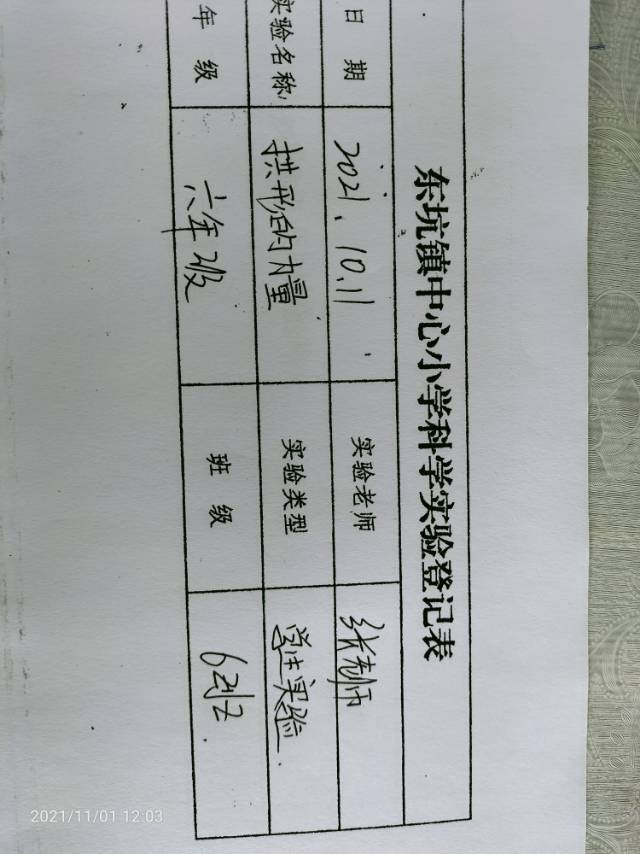 东坑镇中心小学科学实验登记表
日 期 2021.10.11 实验老师 张老师
实验名称 拱形的力量 实验类型 学生实验
年 级 六年级 班 级 6.2班
2021/11/01 12:03